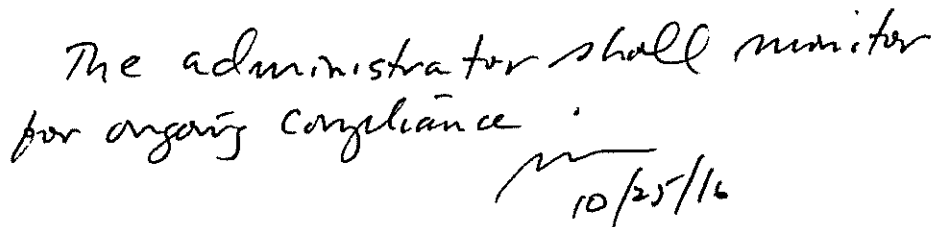 The administrator shall monitor
for ongoing compliance.
10/25/16